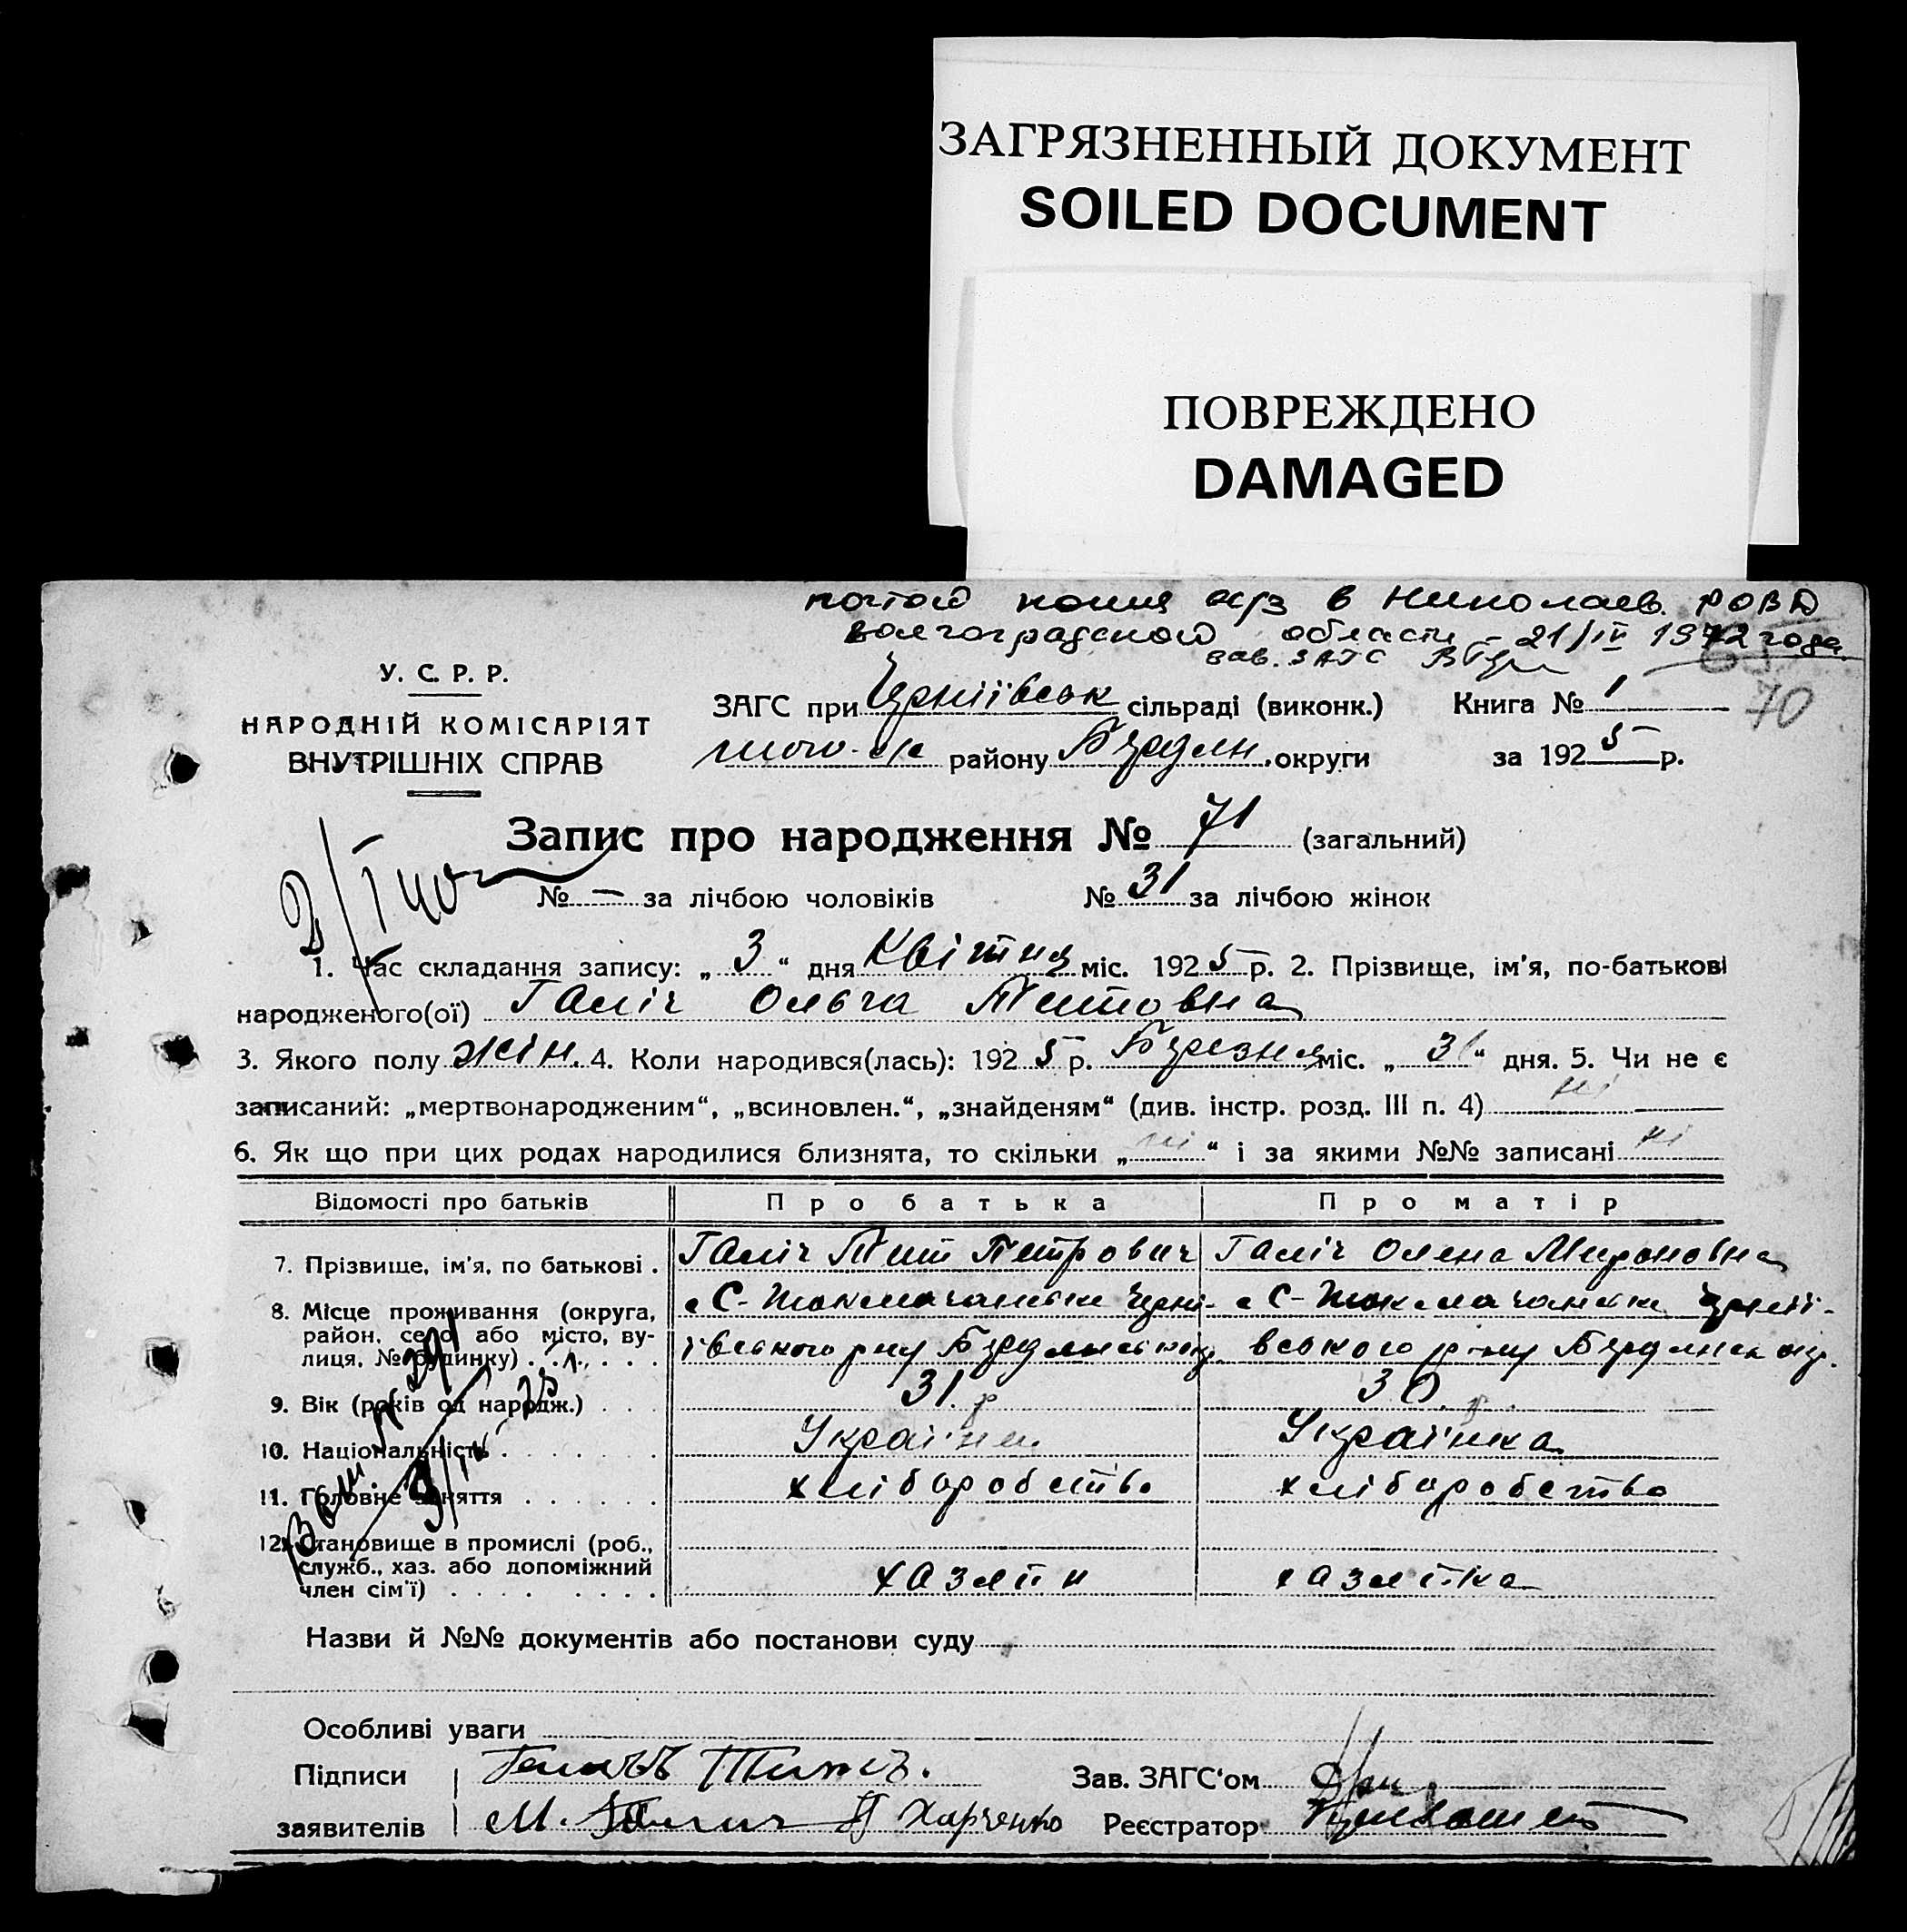 ЗАГРЯЗНЕННЫЙ ДОКУМЕНТ
SOILED DOCUMENT
ПОВРЕЖДЕНО
DAMAGED
копия в Николаев. РОВД
Волгоградской области 21/IV 1972 года.
зав. ЗАГС
У. С. Р. Р.
НАРОДНІЙ КОМІСАРІЯТ
ВНУТРІШНІХ СПРАВ
ЗАГС при Черніївськ сільраді (виконк.) Книга № 1
70
району Бердян. округи за 1925 р.
Запис про народження № 71 (загальний)
№ — за лічбою чоловіків № 31 за лічбою жінок
1. Час складання запису: „3“ дня Квітня міс. 1925 р. 2. Прізвище, ім'я, по-батькові
народженого(ої) Галіч Ольга Титовна
3. Якого полу жін. 4. Коли народився(лась): 1925 р. Березня міс. „31“ дня. 5. Чи не є
записаний: „мертвонародженим“, „всиновлен.“, „знайденям“ (див. інстр. розд. III п. 4) ні
6. Як що при цих родах народилися близнята, то скільки „ні“ і за якими №№ записані ні
Відомості про батьків Про батька Про матір
7. Прізвище, ім'я, по батькові . Галіч Тит Петрович Галіч Олена Мироновна
8. Місце проживання (округа, район, село або місто, вулиця, № будинку)
9. Вік (років од народж.) . . . 31 р 30 р.
10. Національність . . . . . . Українец Українка
11. Головне заняття . . . . . . хліборобство хліборобство
12. Становище в промислі (роб., служб., хаз. або допоміжний член сім'ї) . . . . . . . хазяїн хазяїка
Назви й №№ документів або постанови суду
Особливі уваги
Підписи Зав. ЗАГС'ом
заявителів М. Галич П Харченко Реєстратор